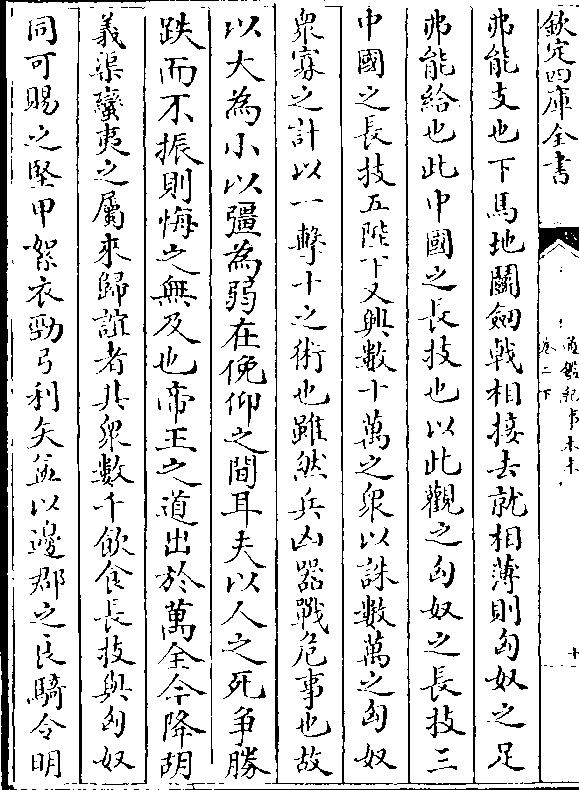 欽定四庫全書
通鑑紀事本末
卷二下
十
弗能支也下馬地鬭劒戟相接去就相薄則匈奴之足
弗能給也此中國之長技也以此觀之匈奴之長技三
中國之長技五陛下又興數十萬之衆以誅數萬之匈奴
衆寡之計以一擊十之術也雖然兵凶器戰危事也故
以大為小以彊為弱在俛仰之間耳夫以人之死爭勝
跌而不振則悔之無及也帝王之道出於萬全今降胡
義渠蠻夷之屬來歸誼者其衆數千飲食長技與匈奴
同可賜之堅甲絮衣勁弓利矢益以邊郡之良騎令明